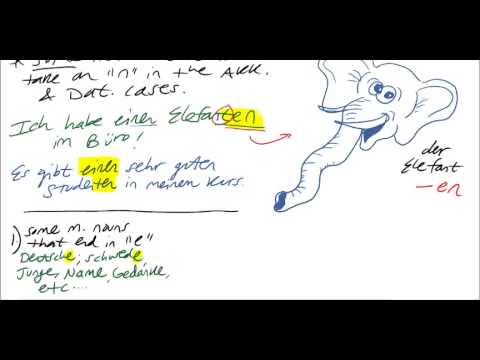 take an "n" in the AKK.
& Dat. cases.
Ich habe einen Elefanten
im Büro!
Es gibt einen sehr guten
Studenten in meinem Kurs.
der
Elefant
-en
1) some m. nouns
that end in "e"
Deutsche, Schwede
Junge, Name, Gedanke,
etc....